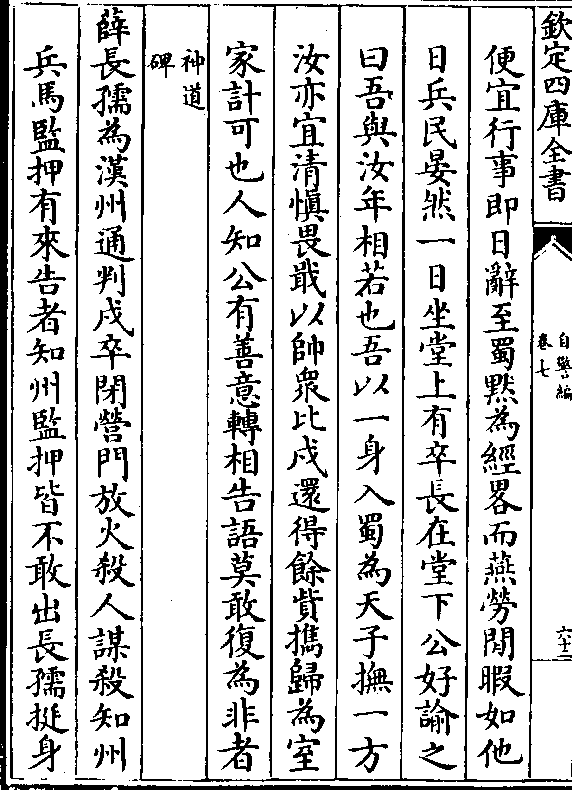 欽定四庫全書
自警編
卷七
六十二
便宜行事即日辭至蜀黙為經畧而燕勞閒暇如他
日兵民晏然一日坐堂上有卒長在堂下公好諭之
曰吾與汝年相若也吾以一身入蜀為天子撫一方
汝亦宜清慎畏戢以帥衆比戍還得餘貲擕歸為室
家計可也人知公有善意轉相告語莫敢復為非者
神道
碑
薛長孺為漢州通判戍卒閉營門放火殺人謀殺知州
兵馬監押有來告者知州監押皆不敢出長孺挺身